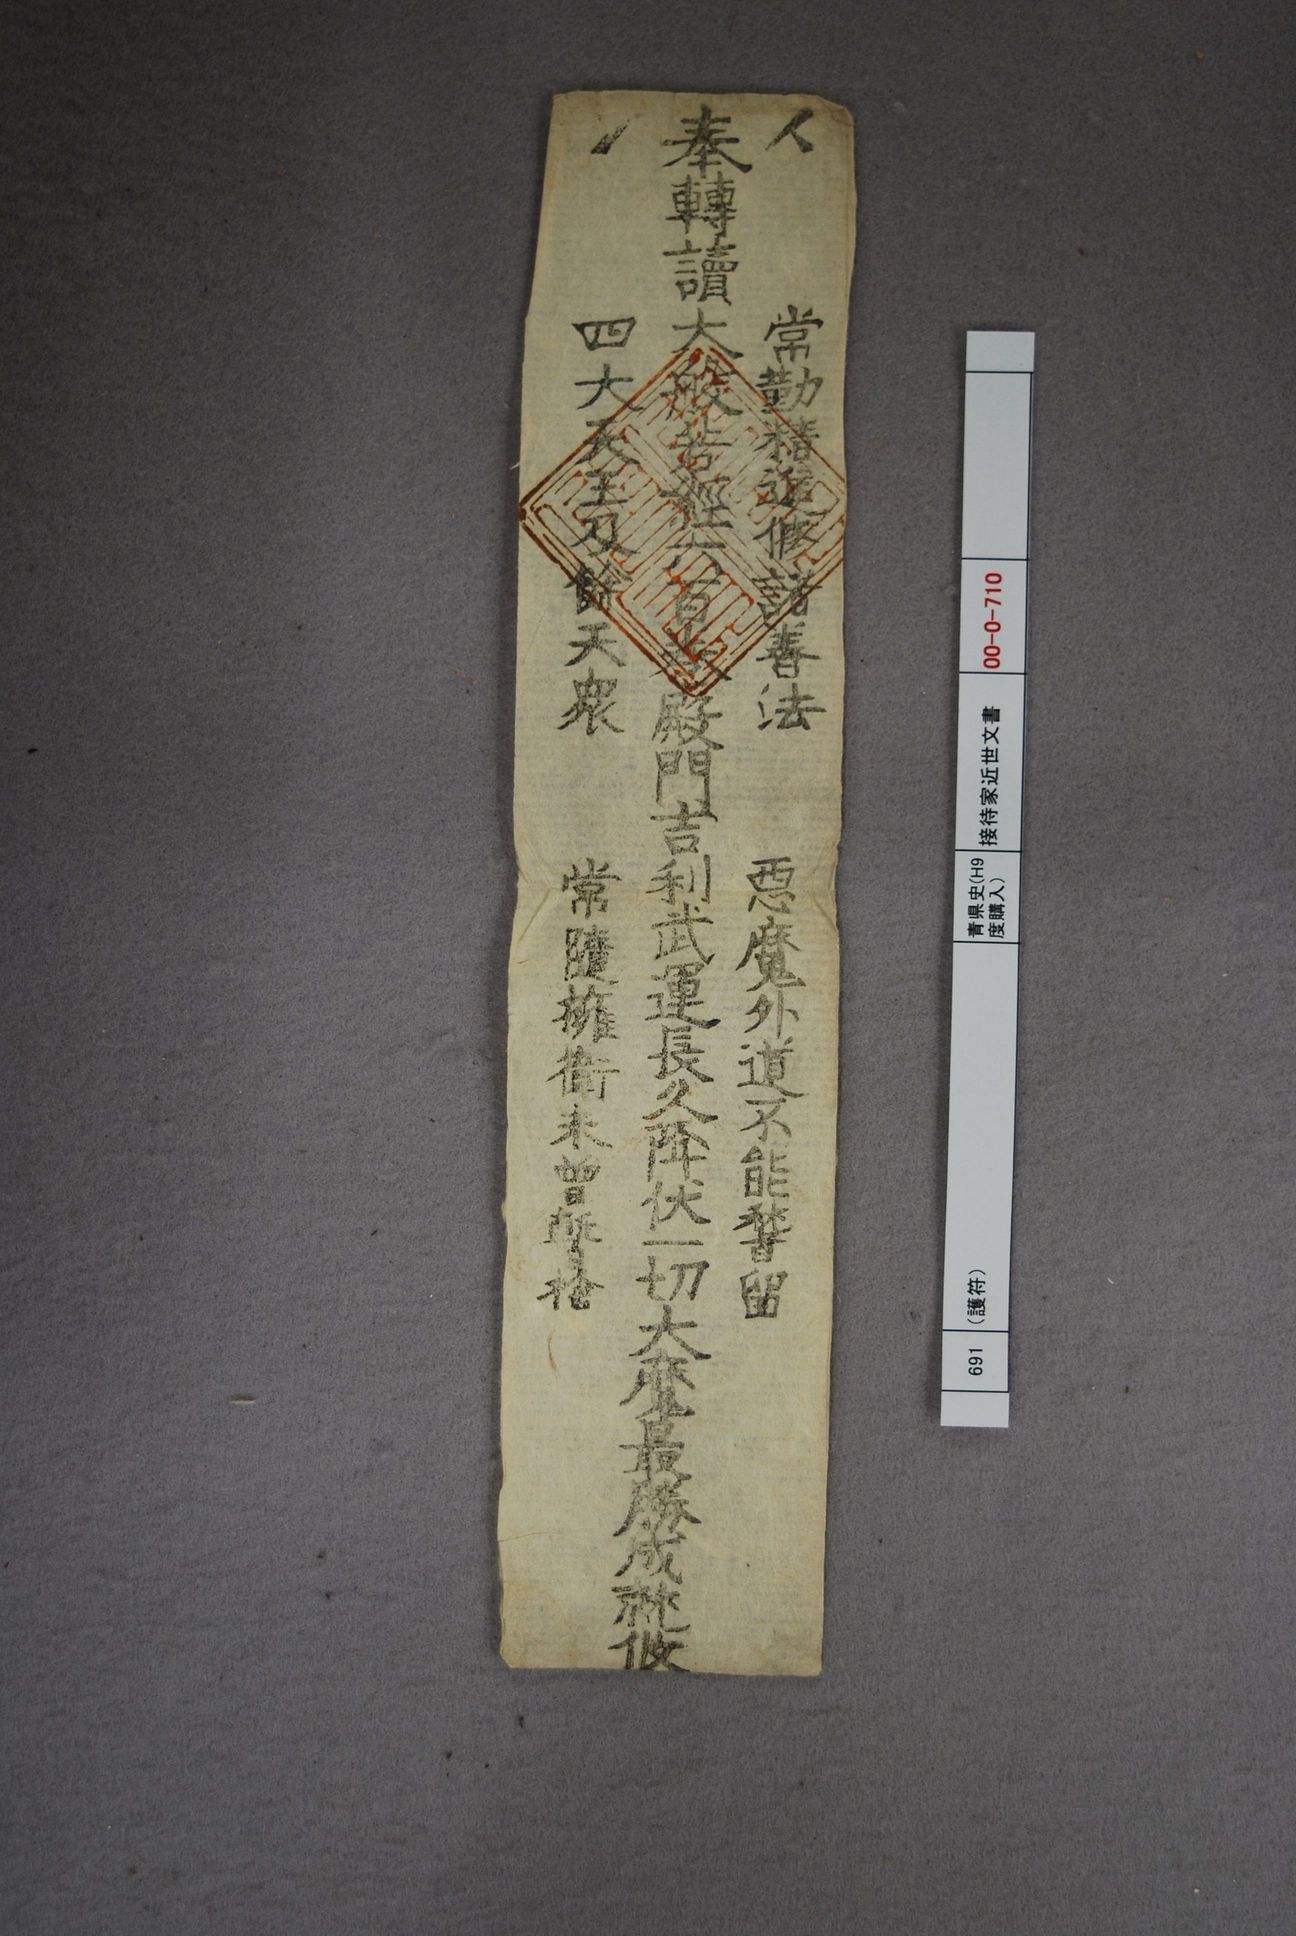 常勤精進修諸善法　惡魔外道不能暫留
奉轉讀大般若經六百卷殿門吉利武運長久降伏一切大魔最勝成就攸
四大天王及餘天衆　常隨擁衞未曾暫捨
00-0-710
接待家近世文書
青県史(H9
度購入)
(護符)
691